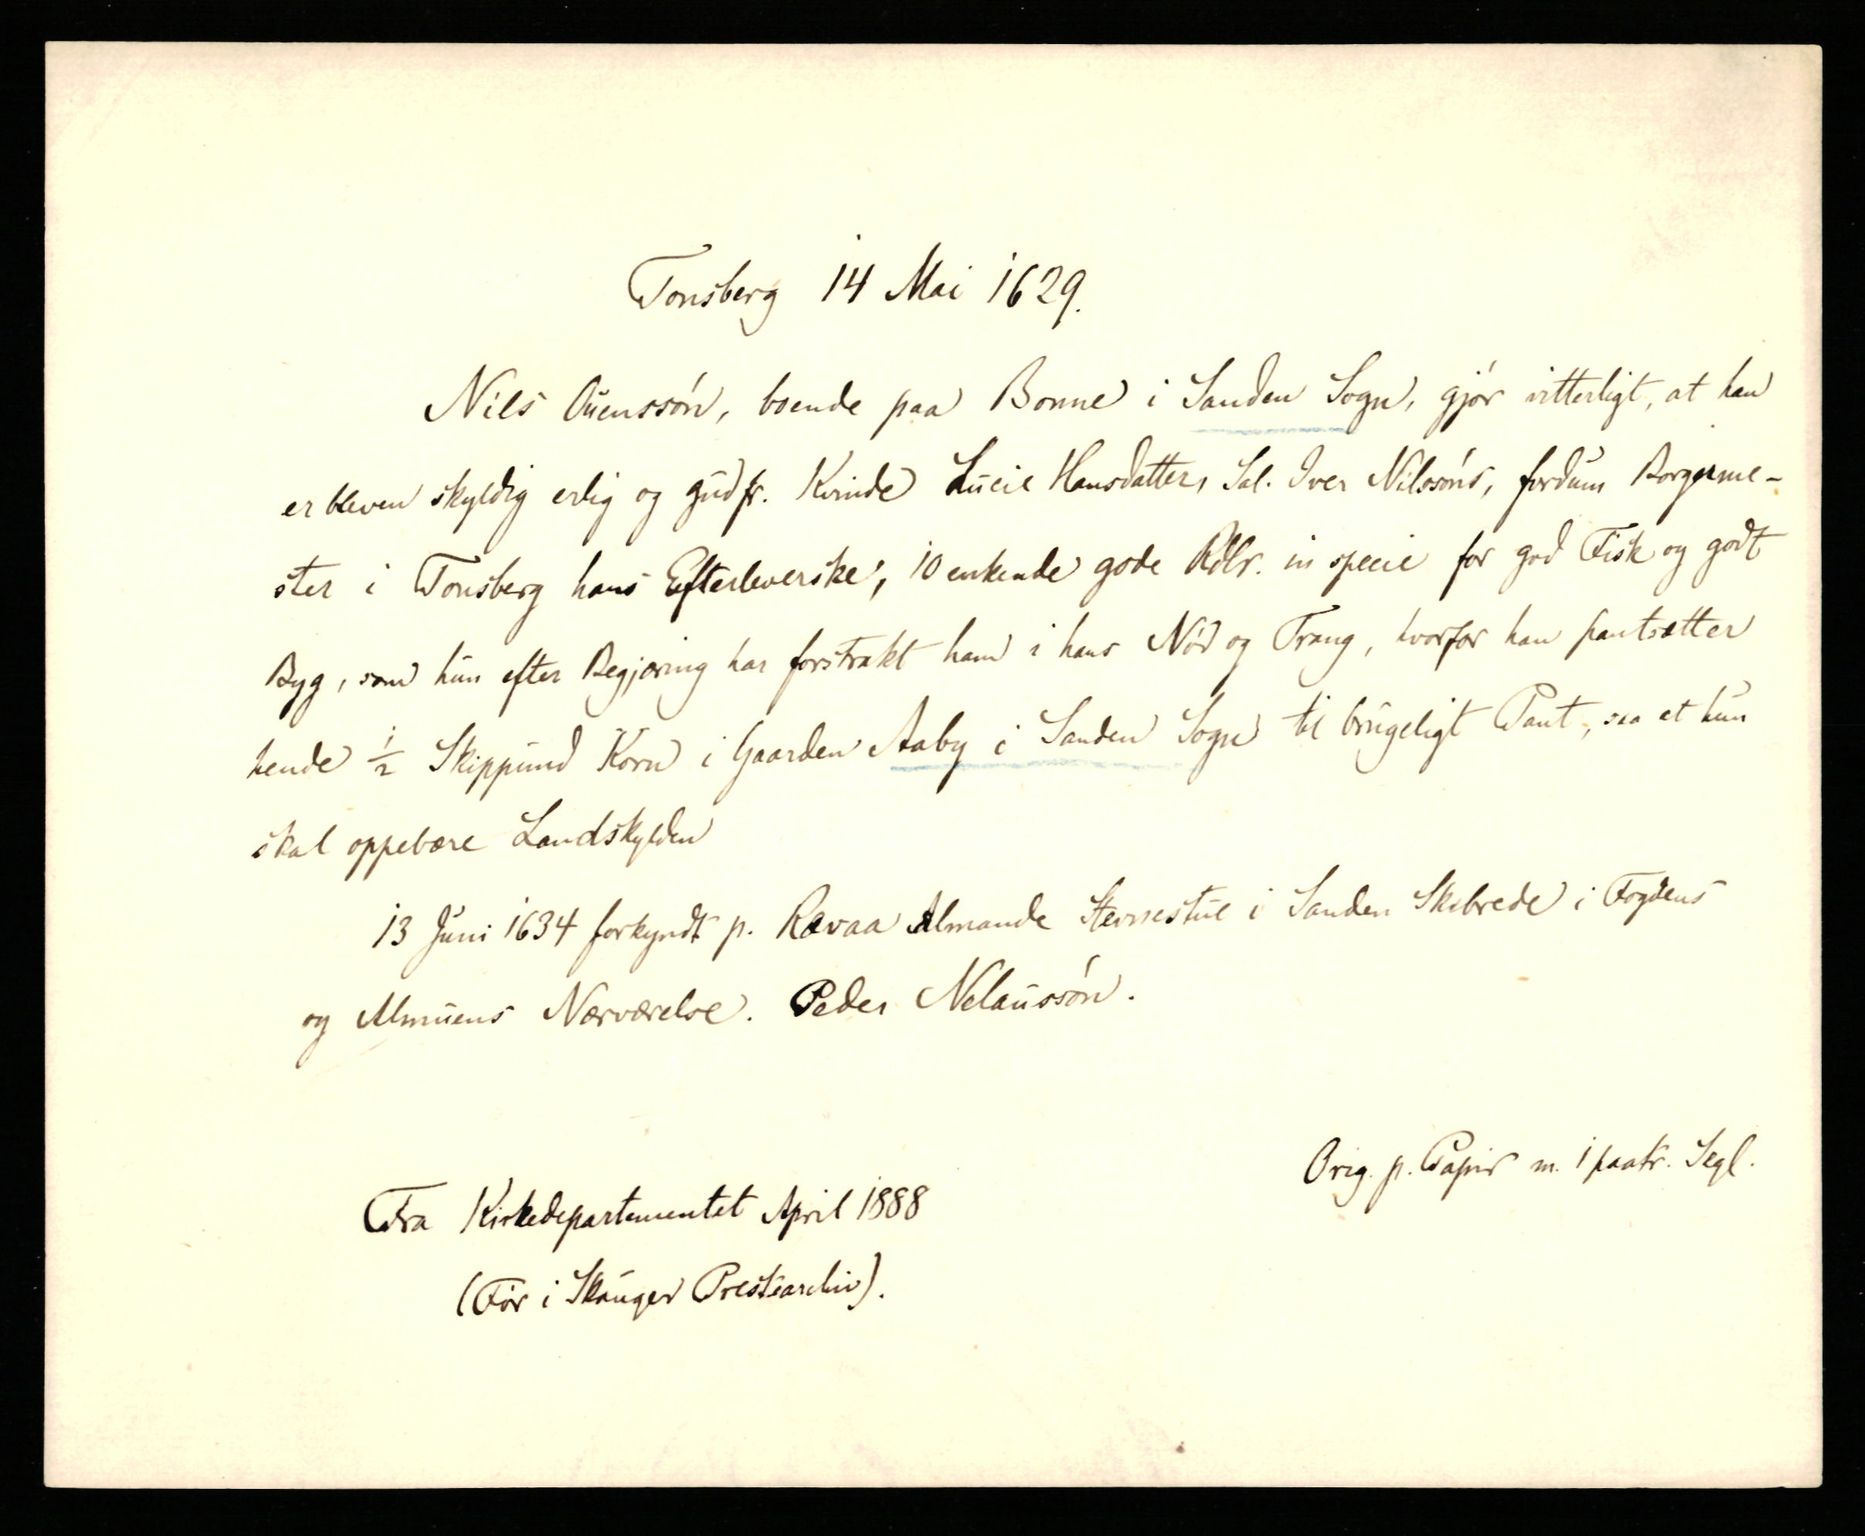 Tonsberg 14 Mai 1629.
Nils Ouenssón, boende paa Bonne i Sanden Sogn, gjór vitterligt, at han
er bleven skyldig erlig og gudfr. Kvinde Lucie Hansdatter, Sal. Iver Nilssóns, fordum Borgerme-
ster i Tonsberg hans Efterleverske, 10 enkende gode Rdlr. in specie for god Fisk og godt
Byg, som hun efter Begjæring har forstrakt ham i hans Nód og Trang, hvorfor han pantsætter
hende ½ Skippund Korn i Gaarden Aaby i Sanden Sogn til brugeligt Pant, saa at hun
skal oppebære Landskylden
13 Juni 1634 forkyndt p. Rævaa Almande Stevnestue i Sanden Skibrede i Fogdens
og Almuens Nærværelse. Peder Nelaussón.
Orig. p. Papir m. 1 paatr. Segl.
Fra Kirkedepartementet April 1888
(Fór i Skauger Prestearchiv).